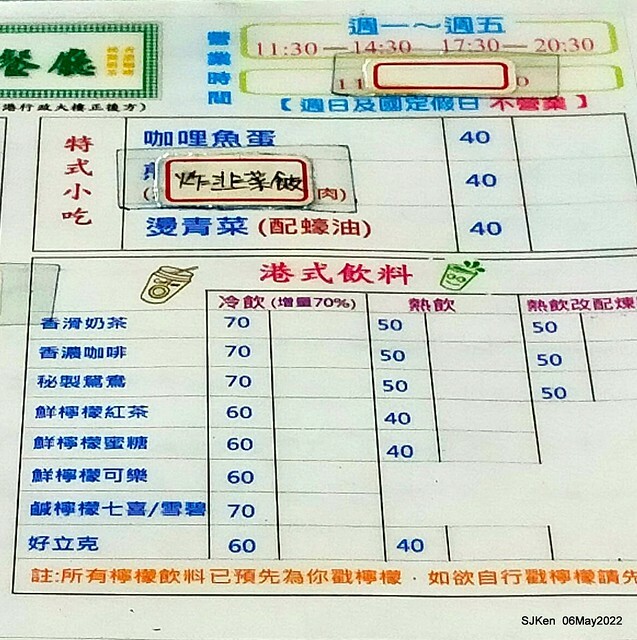 餐廳
港行政大樓正後方)
營業時間
週一～週五
11:30 — 14:30 17:30 - 20:30
【週日及國定假日 不營業】
特式小吃
咖哩魚蛋 40
炸韭菜餃 肉) 40
燙青菜 (配蠔油) 40
港式飲料
冷飲 (增量70%) 熱飲 熱飲改配煉
香滑奶茶 70 50 50
香濃咖啡 70 50 50
秘製鴛鴦 70 50 50
鮮檸檬紅茶 60 40
鮮檸檬蜜糖 60 40
鮮檸檬可樂 60
鹹檸檬七喜/雪碧 70
好立克 60 40
註:所有檸檬飲料已預先為你戳檸檬，如欲自行戳檸檬請先
SJKen 06May2022